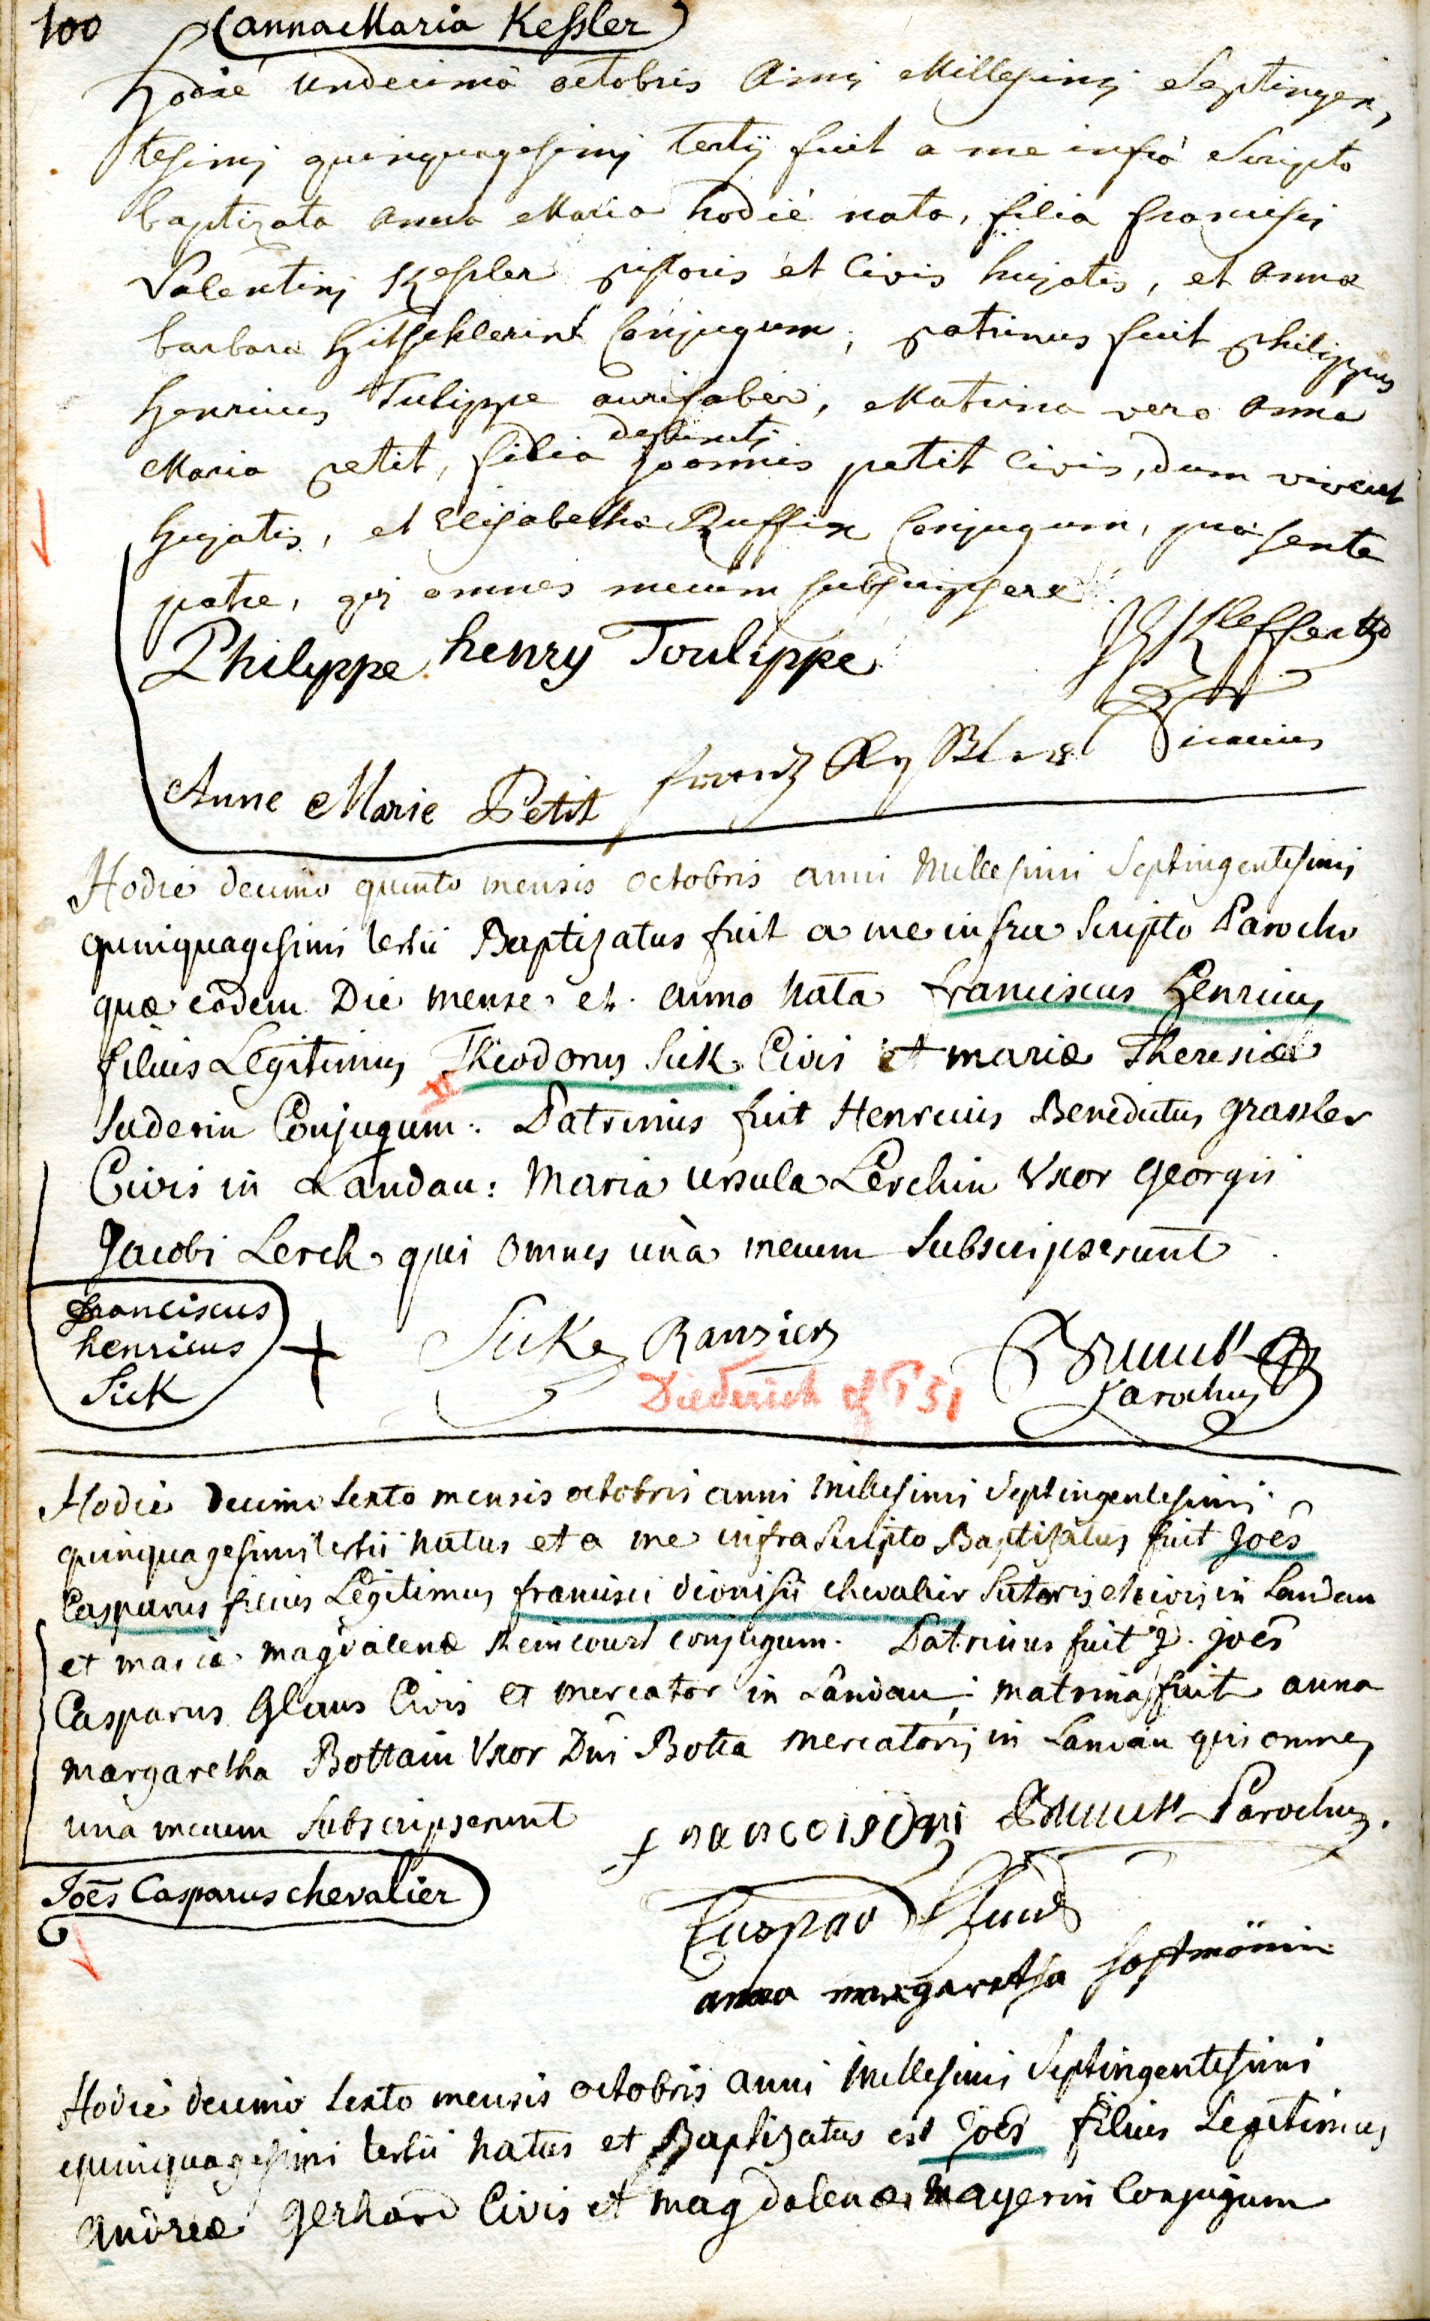 100
(annaMaria Keßler)
Hodie undecimâ octobris Anni Millesimi Septingen,
tesimi quinquagesimi tertij fuit a me infrà Scripto
baptizata Anna Maria hodiè nata, filia francisci
Valentinj Keßler pistoris et Civis hujatis, et Annæ
barbara Hitschlerin Conjugum, patrinus fuit Philippus
Henricus Tulippe aurifaber, Matrina vero Anna
defuncti
Maria petit, filia Joannis petit Civis, dum viveret
hujatis, et Elisabetha Ruffin Conjugum, præsente
patre, qui omnes mecum subscripsere
Philippe henry Toulippe
Vicarius
Anne Marie Petit
frantz
Hodie decimo quinto mensis octobris anni Millesimi Septingentesimi
quinquagesimi tertii Baptizatus fuit a me infra Scripto Parocho
quæ eôdem Die mense et anno Nata franciscus Henricus
filius Legitimus Theodorus Sick Civis et mariæ Theresiæ
Suderin Conjugum. Patrinus fuit Henricus Benedictus grassler
Civis in Landau: Maria Ursula Lerchin Uxor Georgii
Jacobi Lerch qui omnes unà mecum Subscripserunt
franciscus
henricus
Sick
Sicke
Parochus
Diederich
Hodie decimo Sexto mensis octobris anni Millesimi Septingentesimi
quinquagesimi tertii natus et a me infra Scripto Baptizatus fuit Joês
Casparus filius Legitimus francisci dionisii chevalier Sutoris et civis in Landau
et mariæ magdalenæ Remcourt conjugum. Patrinus fuit D. Joês
Casparus Glaus Civis et mercator in Landau; matrina fuit anna
margaretha Bottain Uxor Dni Botta mercatoris in Landau qui omnes
una mecum Subscripserunt
Parochus.
Joēs Casparus chevalier
Caspar
anna margaretha
Hodie decimo Sexto mensis octobris anni Millesimi Septingentesimi
quinquagesimi tertii natus et Baptizatus est Joês filius Legitimus
Andreæ Gerhard Civis et magdalenæ Mayerin Conjugum